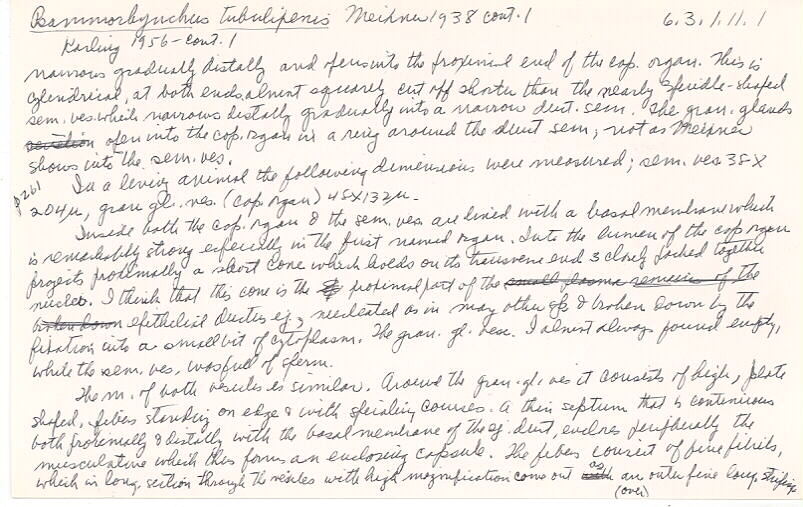 Psammorhynchus tubulipenis Meixner 1938 cont. 1 6.3.1.11.1
Karling 1956 - cont. 1
narrows gradually distally and opens into the proximal end of the cop. organ. This is
cylindrical, at both ends almost squarely cut off shorter than the nearly spindle-shaped
sem. ves. which narrows distally gradually into a narrow duct. sem. The gran. glands
open into the cop. organ in a ring around the duct sem; not as Meixner
shows into the sem. ves.
p261 In a living animal the following dimensions were measured; sem. ves 38 X
204µ, gran gl. ves. (cop organ) 48X132µ.
Inside both the cop. organ & the sem. ves. are lined with a basal membrane which
is remarkably strong especially in the first named organ. Into the lumen of the cop organ
projects proximally a short cone which holds on its transverse end 3 closely packed together
nuclei. I think that this cone is the proximal part of the small plasma remains of the
broken down epithelial ductus ej., nucleated as in may other spp & broken down by the
fixation into a small bit of cytoplasm. The gran. gl. vesc. I almost always found empty,
while the sem. ves. was full of sperm.
The m. of both vesicles is similar. Around the gran. gl. ves it consists of high, plate
shaped, fibers standing on edge & with spiraling courses. A thin septum that is continuous
both proximally & distally with the basal membrane of the ej. duct, encloses peripherally the
musculature which thus forms an enclosing capsule. The fibers consist of fine fibrils,
which in long. section through the vesicles with high magnification come out as an outer fine long. striping
(over)